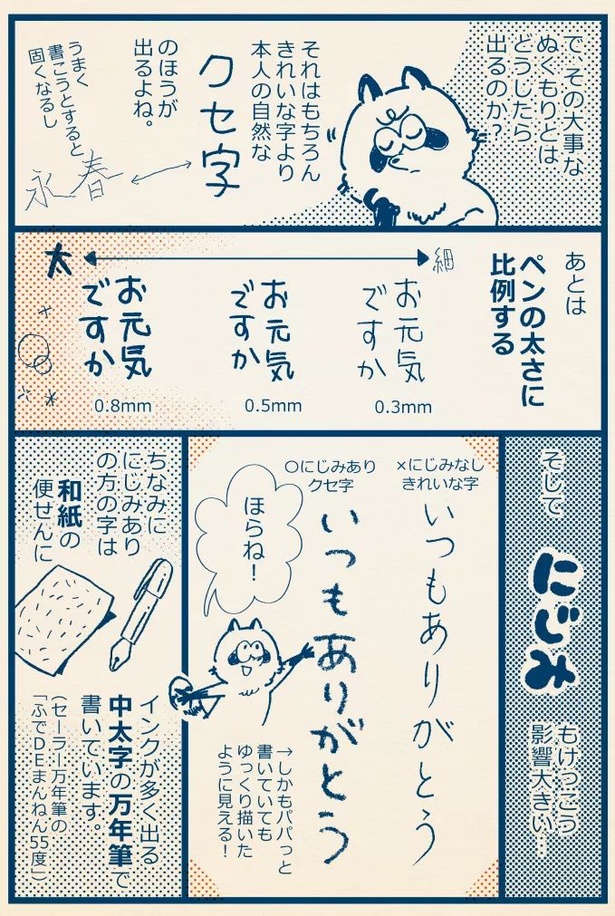 で、その大事な
ぬくもりとは
どうしたら
出るのか?
それはもちろん
きれいな字より
本人の自然な
クセ字
のほうが
出るよね。
うまく
書こうとすると
固くなるし
永春
あとは
ペンの太さに
比例する
細
太
お元気
ですか
0.3mm
お元気
ですか
0.5mm
お元気
ですか
0.8mm
そして
にじみ
もけっこう
影響大きい…
×にじみなし
きれいな字
いつもありがとう
○にじみあり
クセ字
いつもありがとう
ほらね!
→しかもパパっと
書いていても
ゆっくり描いた
ように見える!
ちなみに
にじみあり
の方の字は
和紙の
便せんに
インクが多く出る
中太字の万年筆で
書いています。
(セーラー万年筆の
「ふでDEまんねん55度」)